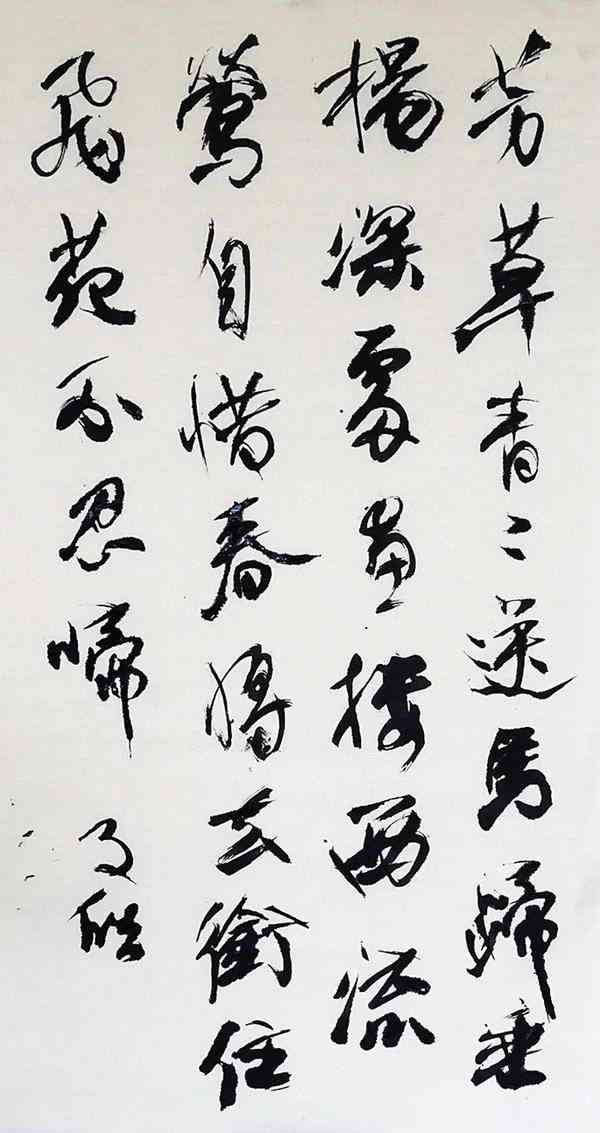 芳草青〻送馬蹄垂
楊深處畫樓西流
鶯自惜春將去銜住
飛花不忍啼